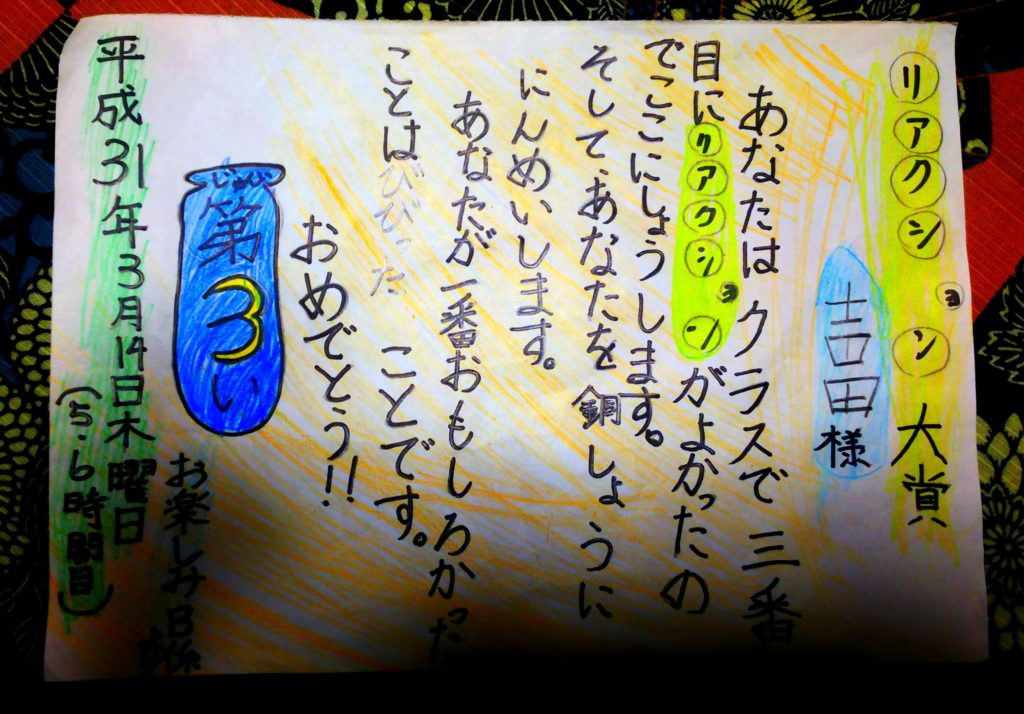 リアクション大賞
吉田様
あなたはクラスで三番
目にリアクションがよかったの
でここにしょうします。
そして、あなたを銅しょうに
にんめいします。
あなたが一番おもしろかった
ことはびびった ことです。
おめでとう!!
じゅんい
第3い
平成31年3月14日木曜日
(5.6時間目)
お楽しみB係